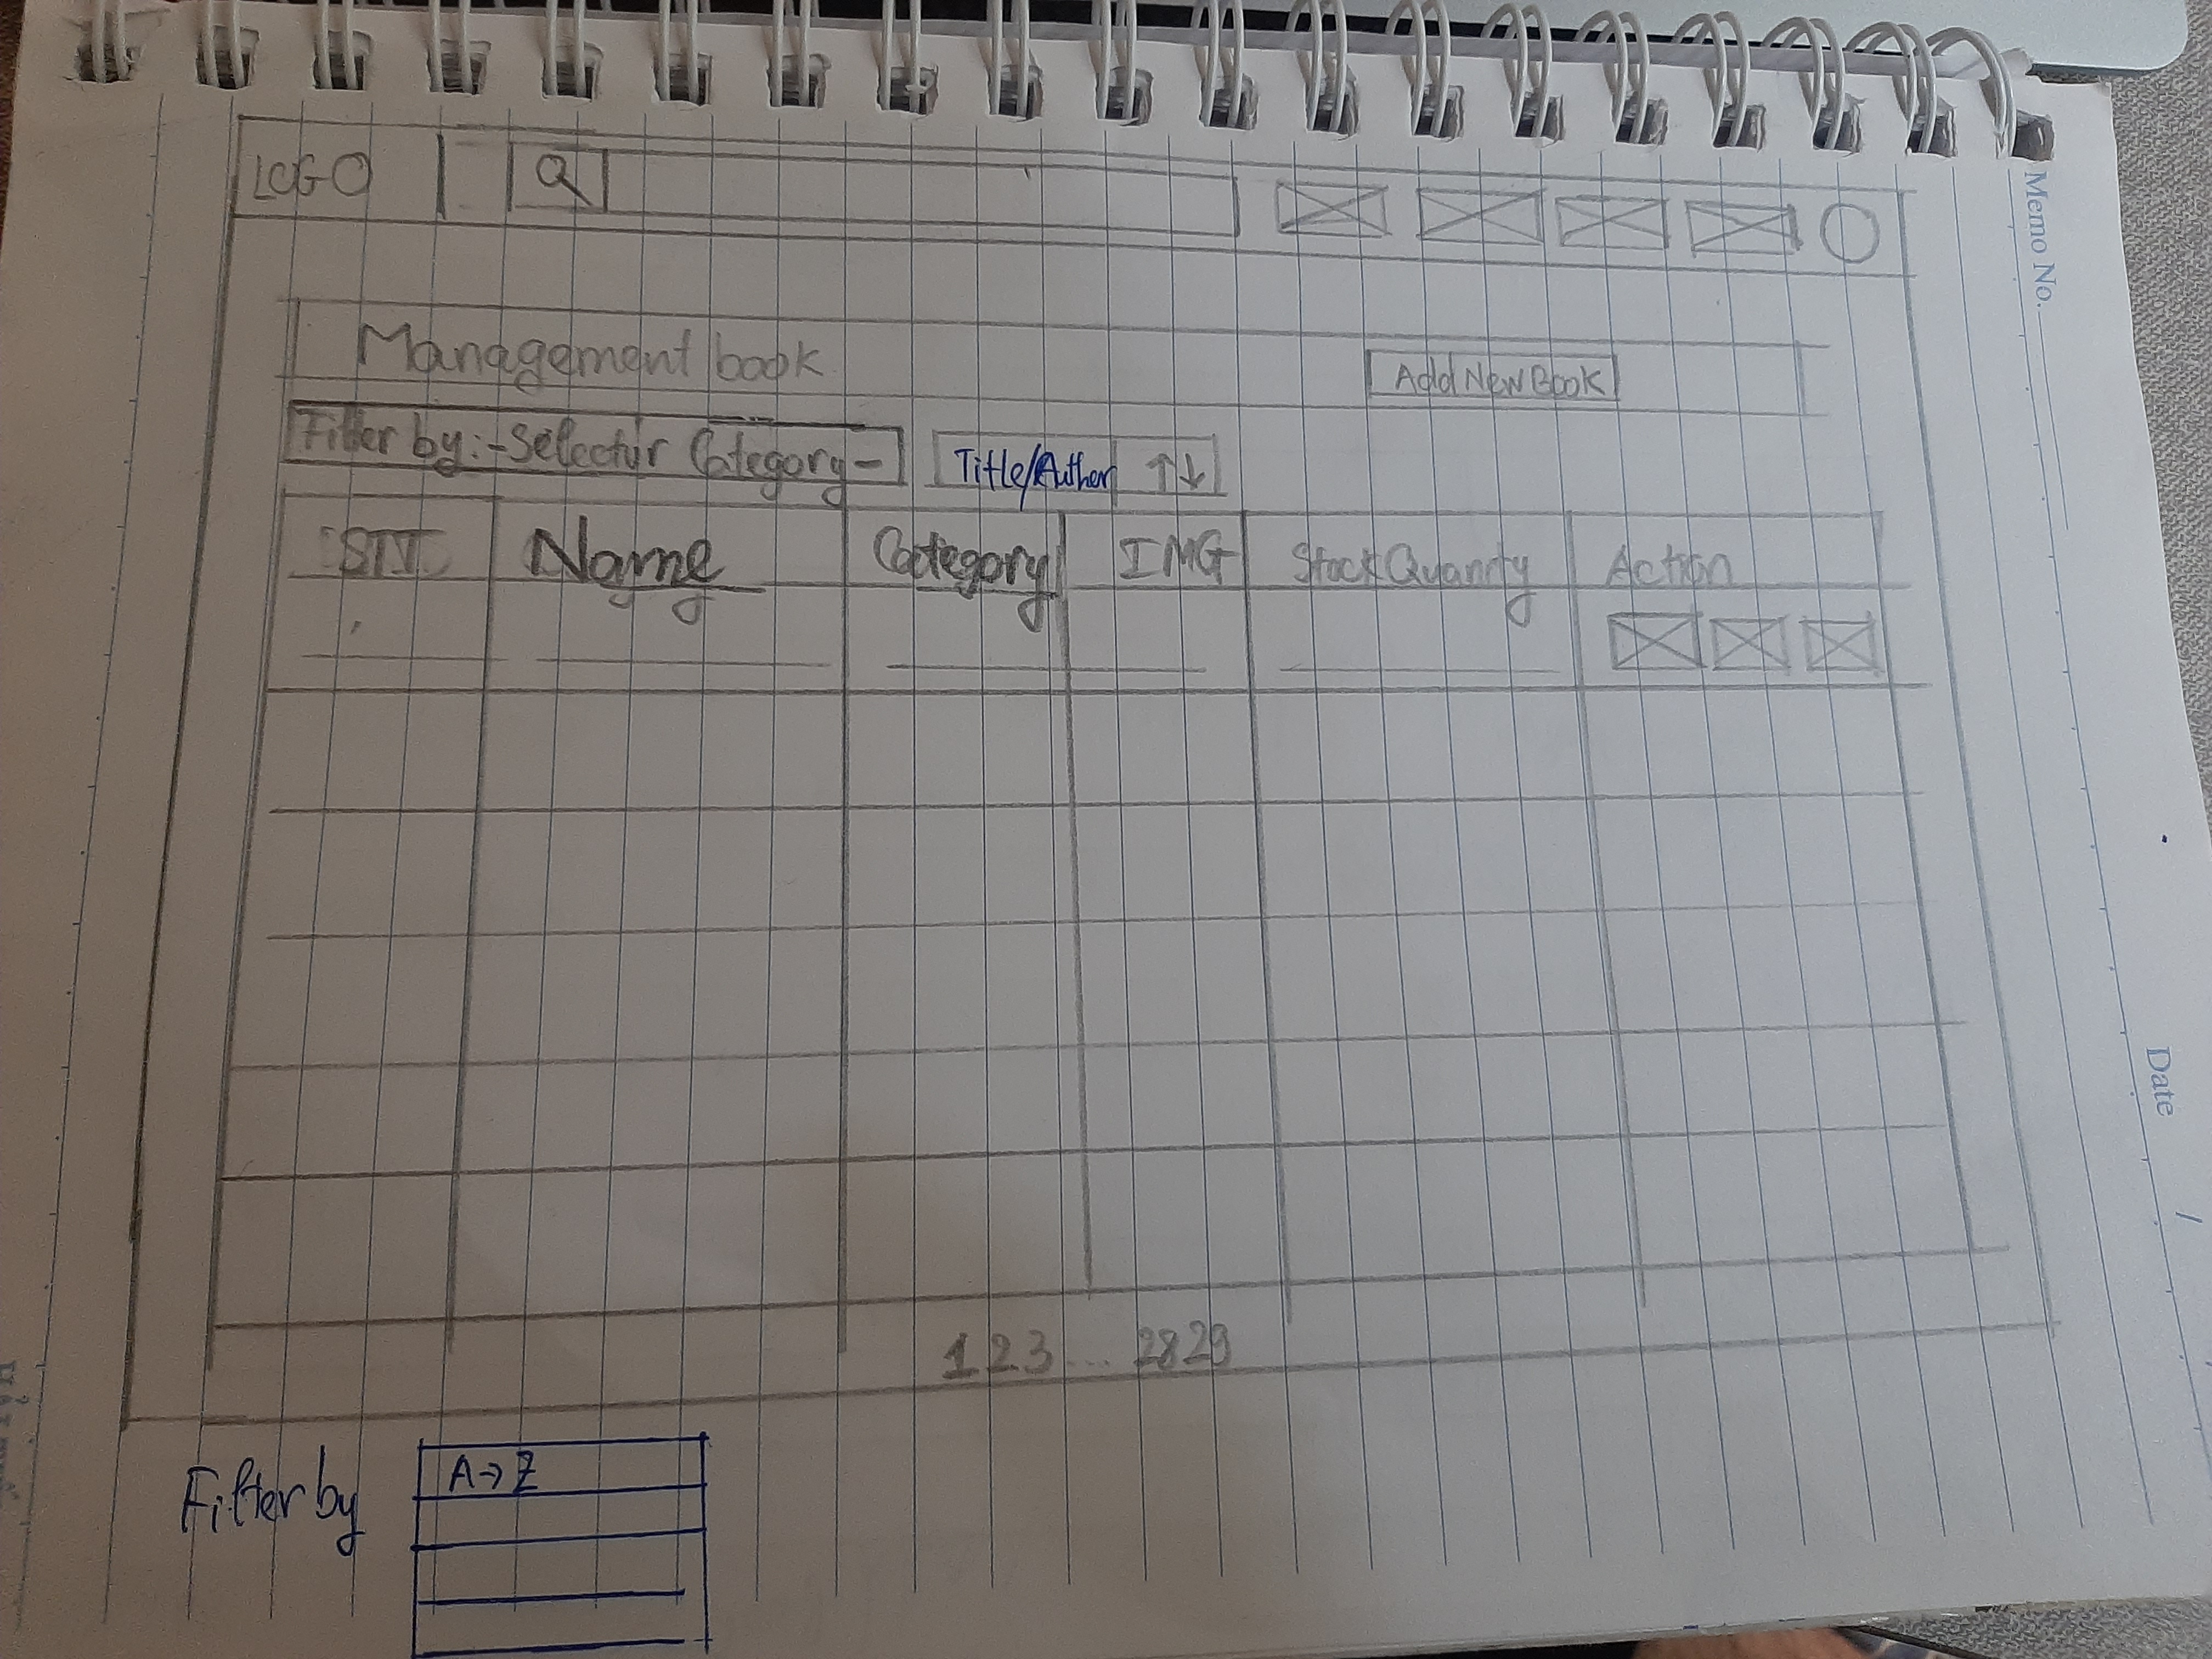 LOGO
Management book
Add New Book
Filter by: - Selectir Category -
Title/Auther ↑↓
Name
Category
IMG
Stock Quanity
Action
1 2 3 ... 28 29
Filter by
A→Z
Memo No.
Date